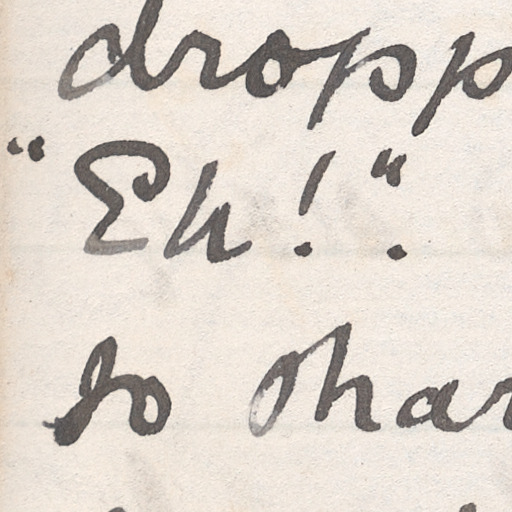 dropp
"Eh!".
so shar